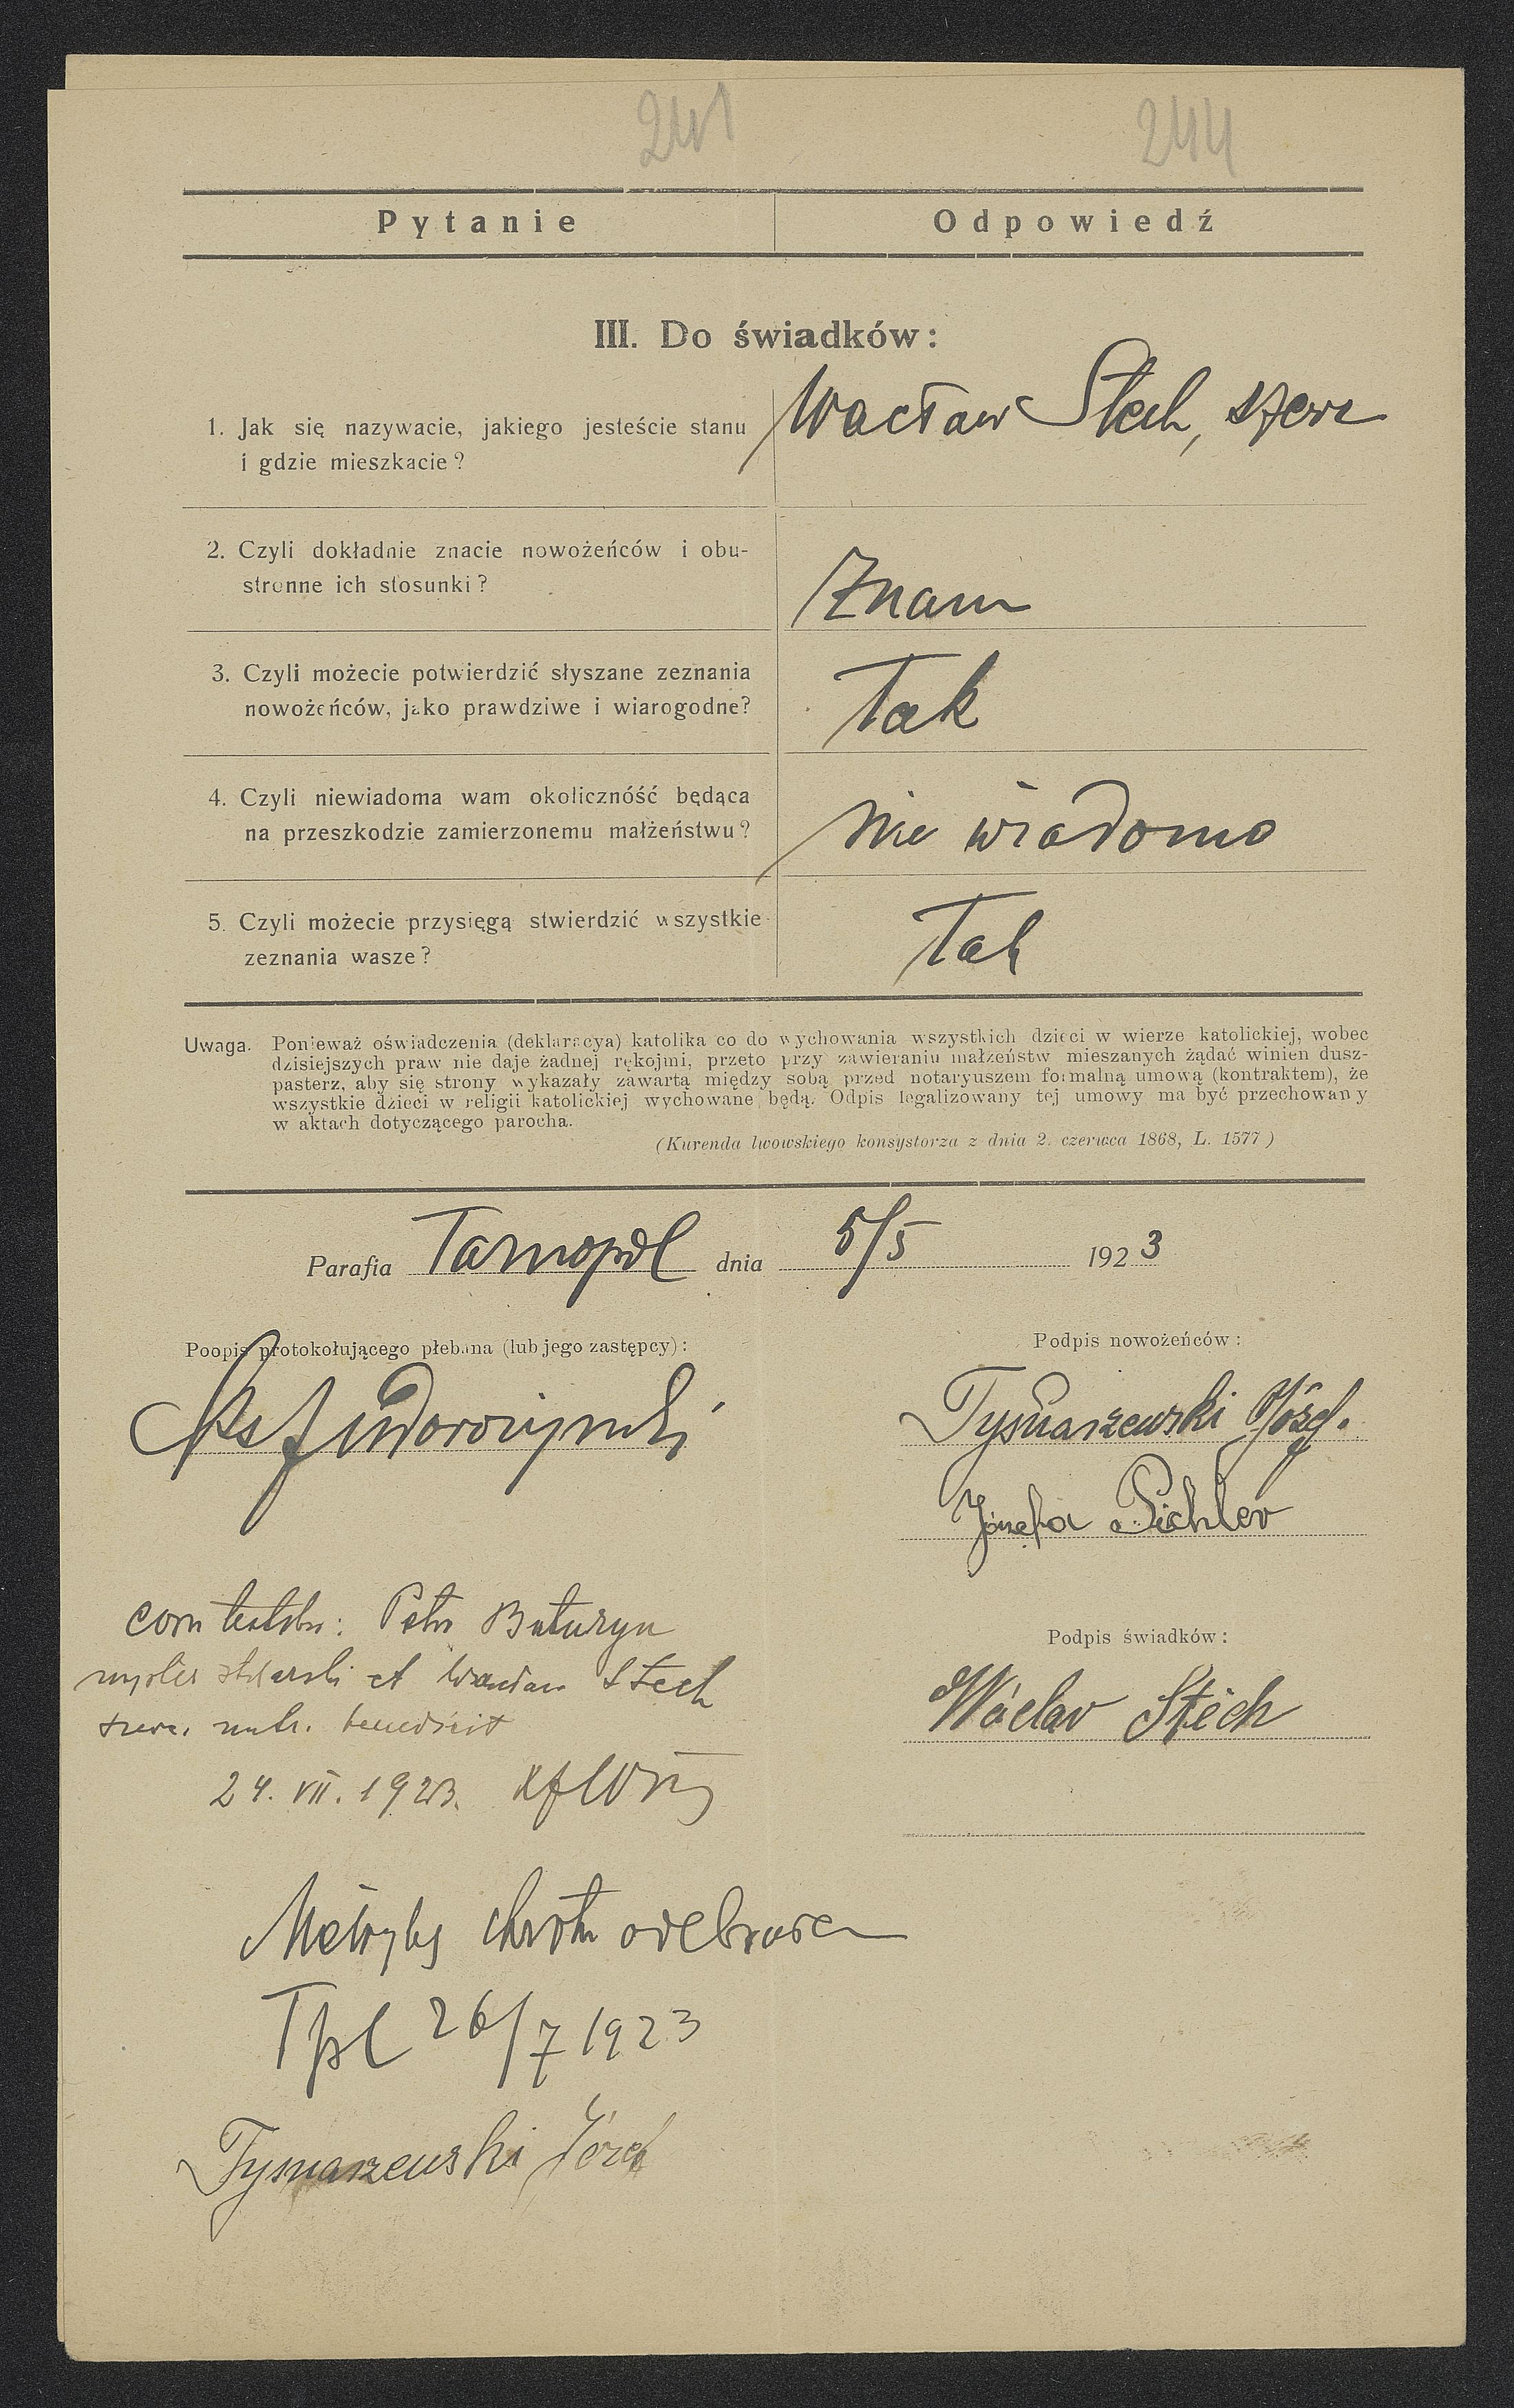 241 244
Pytanie Odpowiedź
III. Do świadków:
1. Jak się nazywacie, jakiego jesteście stanu
i gdzie mieszkacie?
Wacław Stech, szewc
2. Czyli dokładnie znacie nowożeńców i obu-
stronne ich stosunki?
Znam
3. Czyli możecie potwierdzić słyszane zeznania
nowożeńców, jako prawdziwe i wiarogodne?
Tak
4. Czyli niewiadoma wam okoliczność będąca
na przeszkodzie zamierzonemu małżeństwu?
nie wiadomo
5. Czyli możecie przysięgą stwierdzić wszystkie
zeznania wasze?
Tak
Uwaga. Ponieważ oświadczenia (deklaracya) katolika co do wychowania wszystkich dzieci w wierze katolickiej, wobec
dzisiejszych praw nie daje żadnej rękojmi, przeto przy zawieraniu małżeństw mieszanych żądać winien dusz-
pasterz, aby się strony wykazały zawartą między sobą przed notaryuszem formalną umową (kontraktem), że
wszystkie dzieci w religii katolickiej wychowane będą. Odpis legalizowany tej umowy ma być przechowany
w aktach dotyczącego parocha.
(Kurenda lwowskiego konsystorza z dnia 2. czerwca 1868, L. 1577)
Parafia Tarnopol dnia 5/5 1923
Poopis protokołującego plebana (lub jego zastępcy):
Podpis nowożeńców:
Tysnaszewski Józef.
Józefa Pichler
Petro Baturyn
et Wacław Stech
24. VII. 1923.
Podpis świadków:
Wáclav Stěch
Metrykę chrztu odebrałem
Tpl 26/7 1923
Tysnaszewski Józef